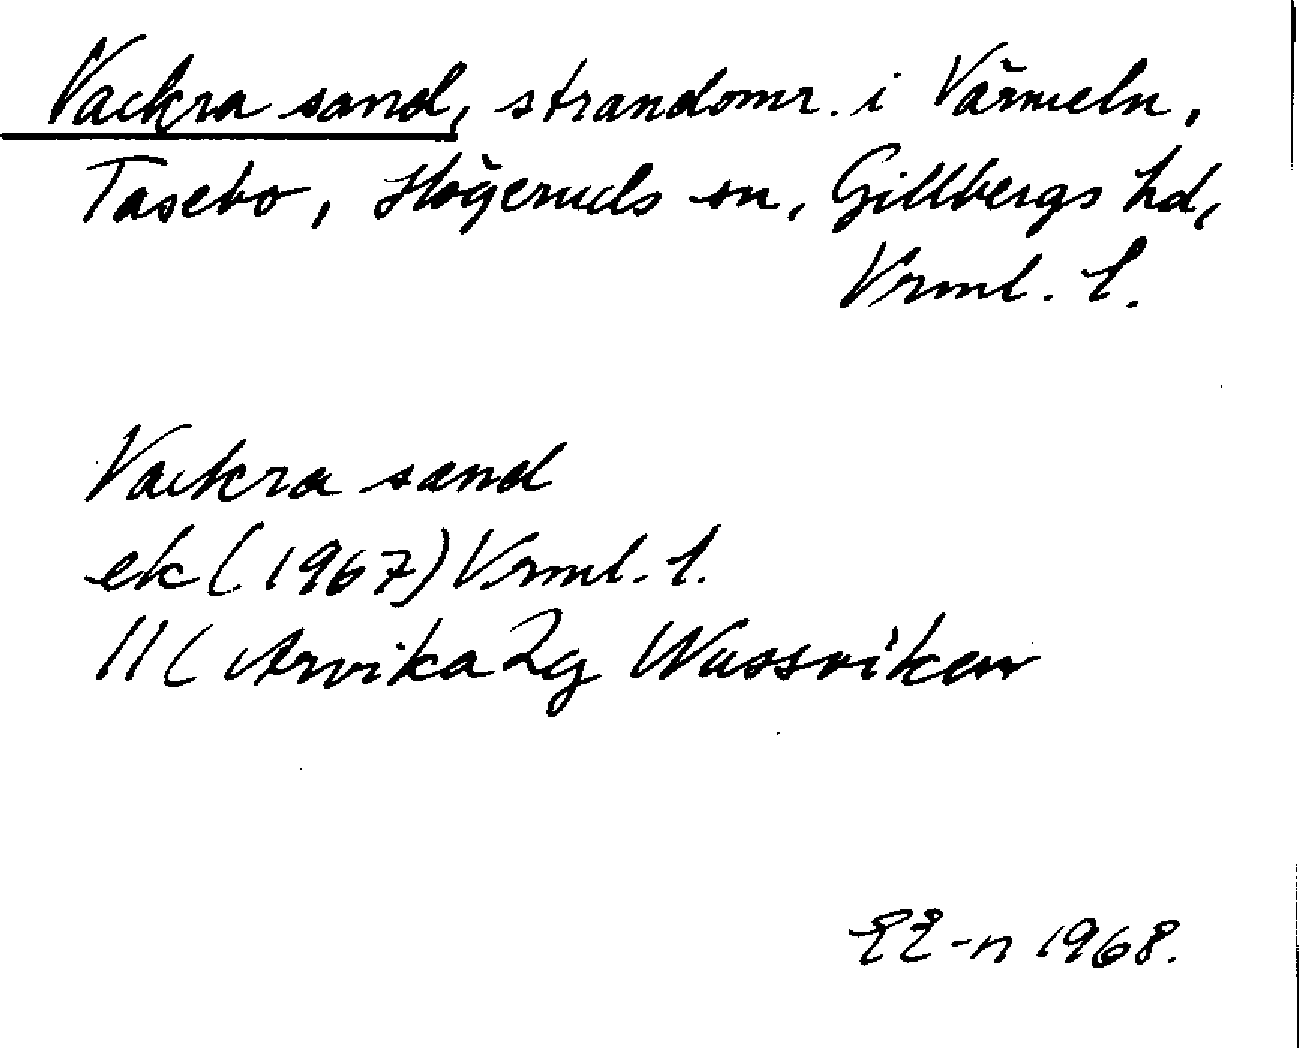 Vackra sand, strandomr. i Värmeln,
Tasebo, Högeruds sn, Gillbergs hd,
Vrml. l.
Vackra sand
ek (1967) Vrml. l.
11C Arvika 2g Nussviken
EE-n 1968.